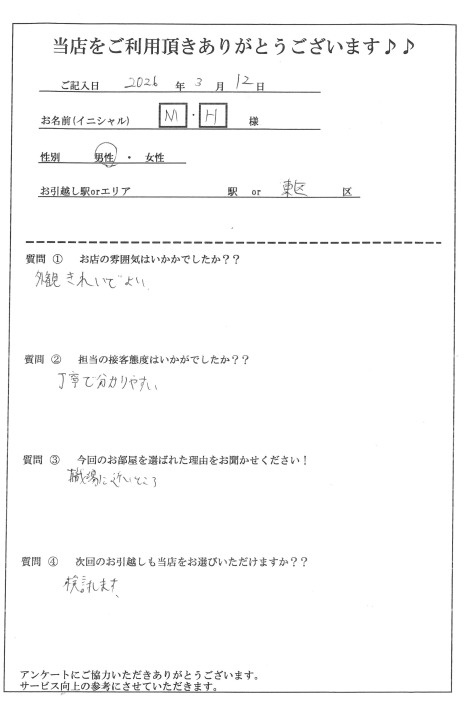 当店をご利用頂きありがとうございます♪♪
ご記入日 2026 年 3 月 12 日
お名前(イニシャル) M ・ H 様
性別 男性 ・ 女性
お引越し駅orエリア 駅 or 東区 区
質問 ① お店の雰囲気はいかかでしたか??
外観きれいでよい
質問 ② 担当の接客態度はいかがでしたか??
丁寧で分かりやすい
質問 ③ 今回のお部屋を選ばれた理由をお聞かせください!
職場に近いところ
質問 ④ 次回のお引越しも当店をお選びいただけますか??
検討します
アンケートにご協力いただきありがとうございます。
サービス向上の参考にさせていただきます。